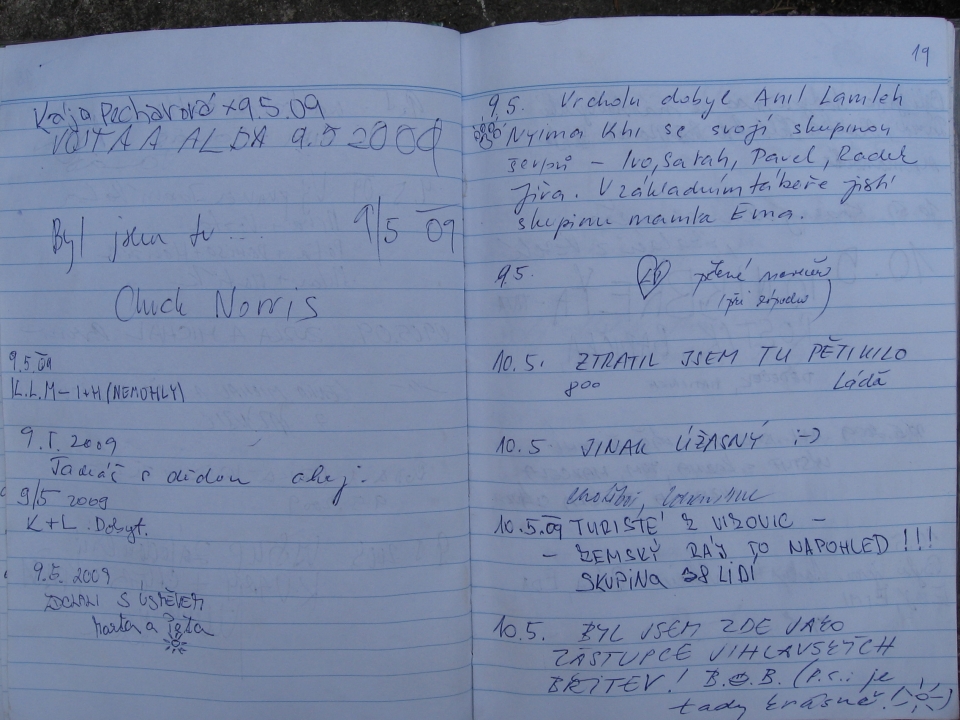 Kája Pecharová × 9.5.09
VOJTA A ALDA 9.5 2009
Byl jsem tu ... 9/5 09
Chuck Norris
9.5.09
K.L.M – I+H (NEMOHLY)
9.5.2009
Tomáš s dědou ahoj.
9/5 2009
K+L Dobyt.
9.5.2009
S ÚSMĚVEM
9.5. Vrcholu dobyl Anil Lamleh
Nyima Khi se svojí skupinou
šerpů – Ivo, Sarah, Pavel, Radek
Jíra. V základním táboře jistí
skupinu mamka Ema.
9.5.
(při západu)
10.5. ZTRATIL JSEM TU PĚTIKILO
800 Láďa
10.5 JINAK ÚŽASNÝ :-)
10.5.09 TURISTÉ Z VIZOVIC –
– ZEMSKÝ RÁJ TO NAPOHLED!!!
SKUPINA 38 LIDÍ
10.5. BYL JSEM ZDE JAKO
ZÁSTUPCE JIHLAVSKÝCH
BŘITEV! B.O.B. (P.S.: je
tady krásně!)
19